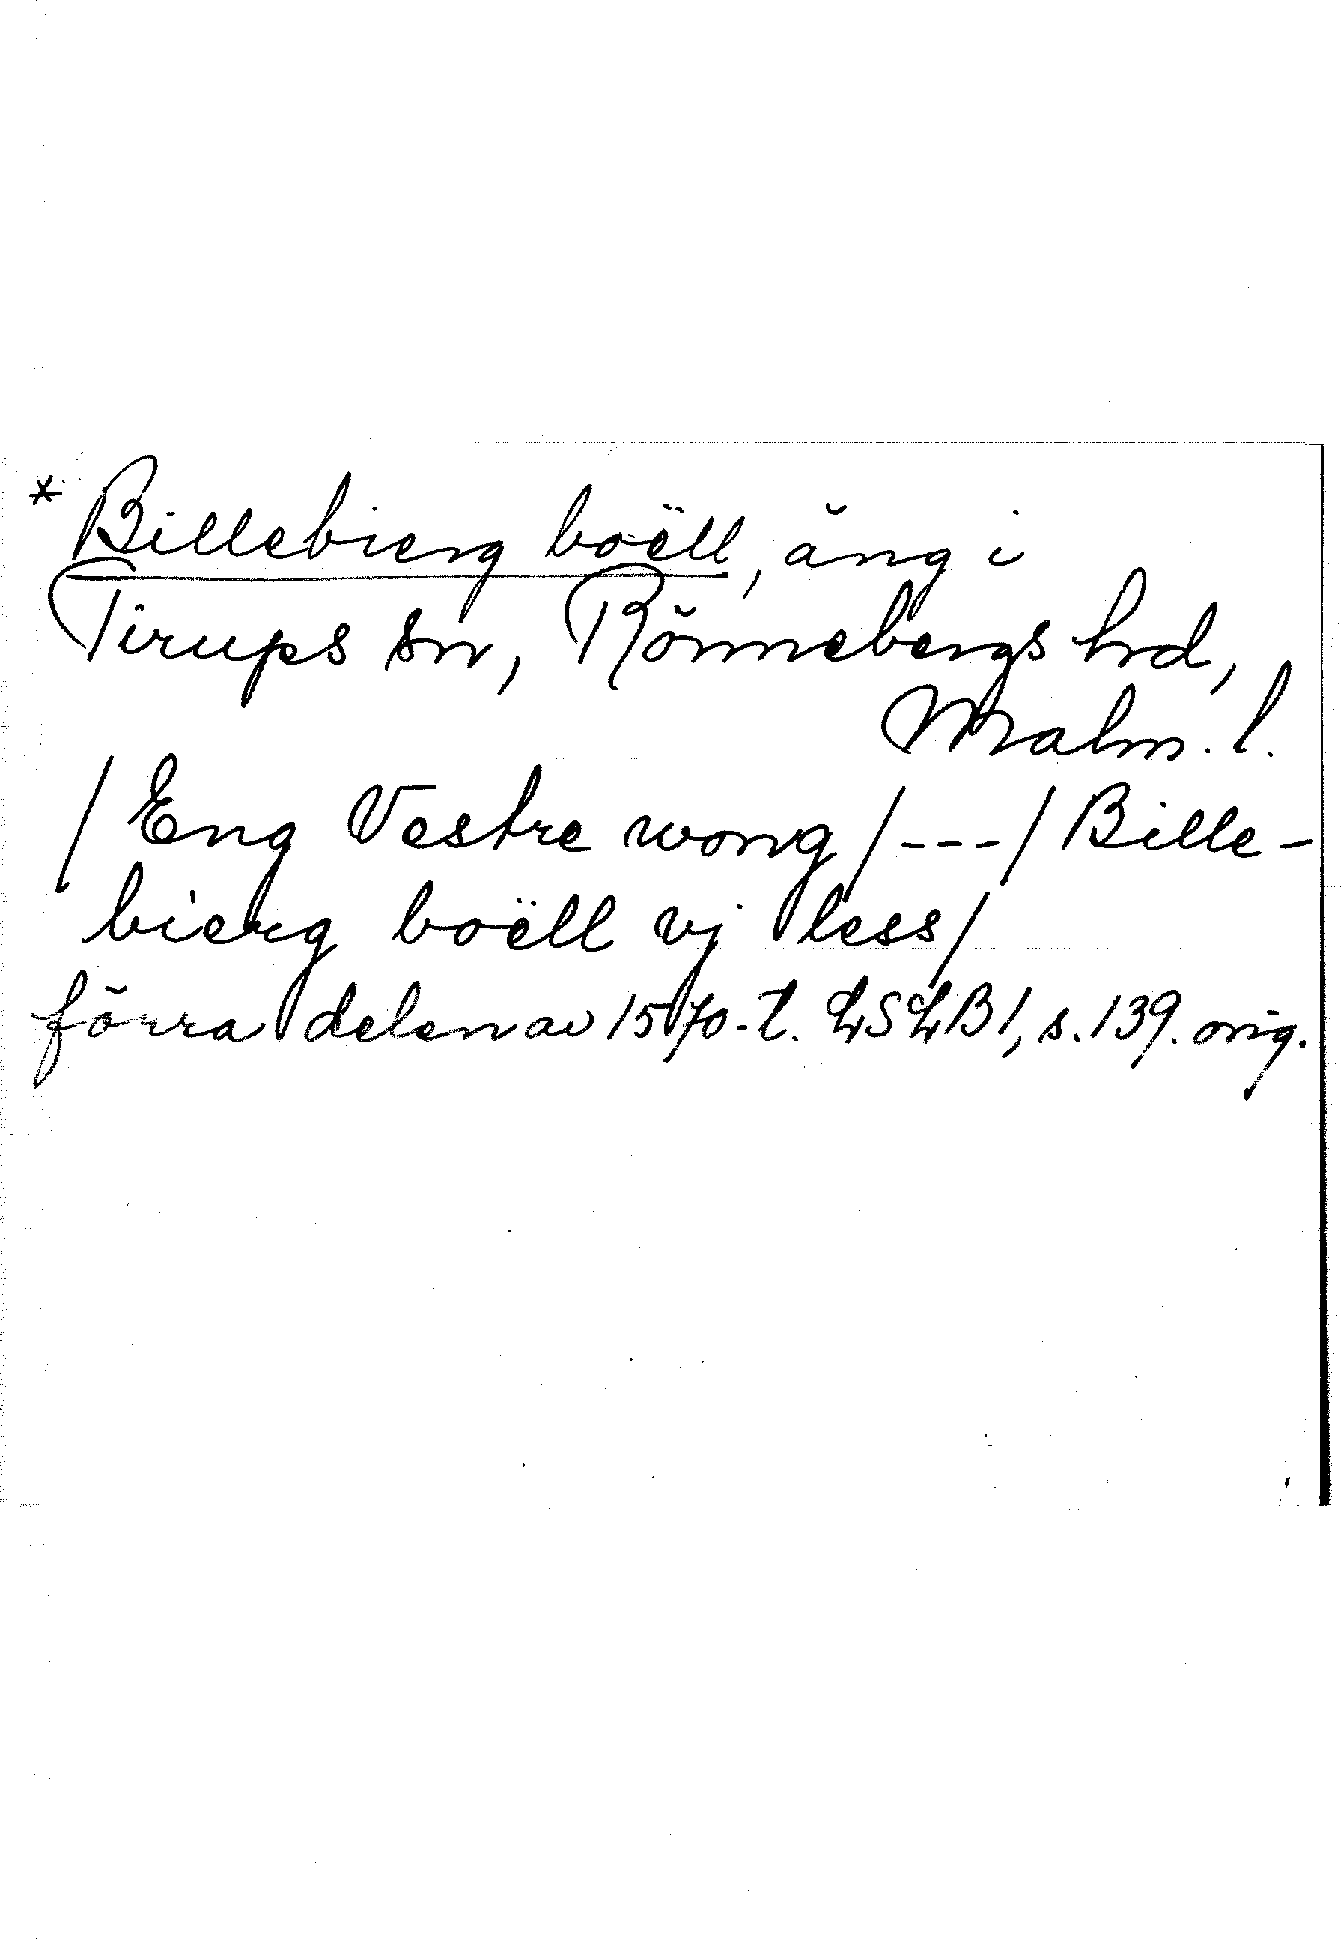 * Billebierg boëll, äng i
Tirups sn, Rönnebergs hrd,
Malm. l.
/ Eng Vestre wong /---/ Bille-
bierg boëll vj less /
förra delen av 1570-t. LSLB 1, s. 139. orig.